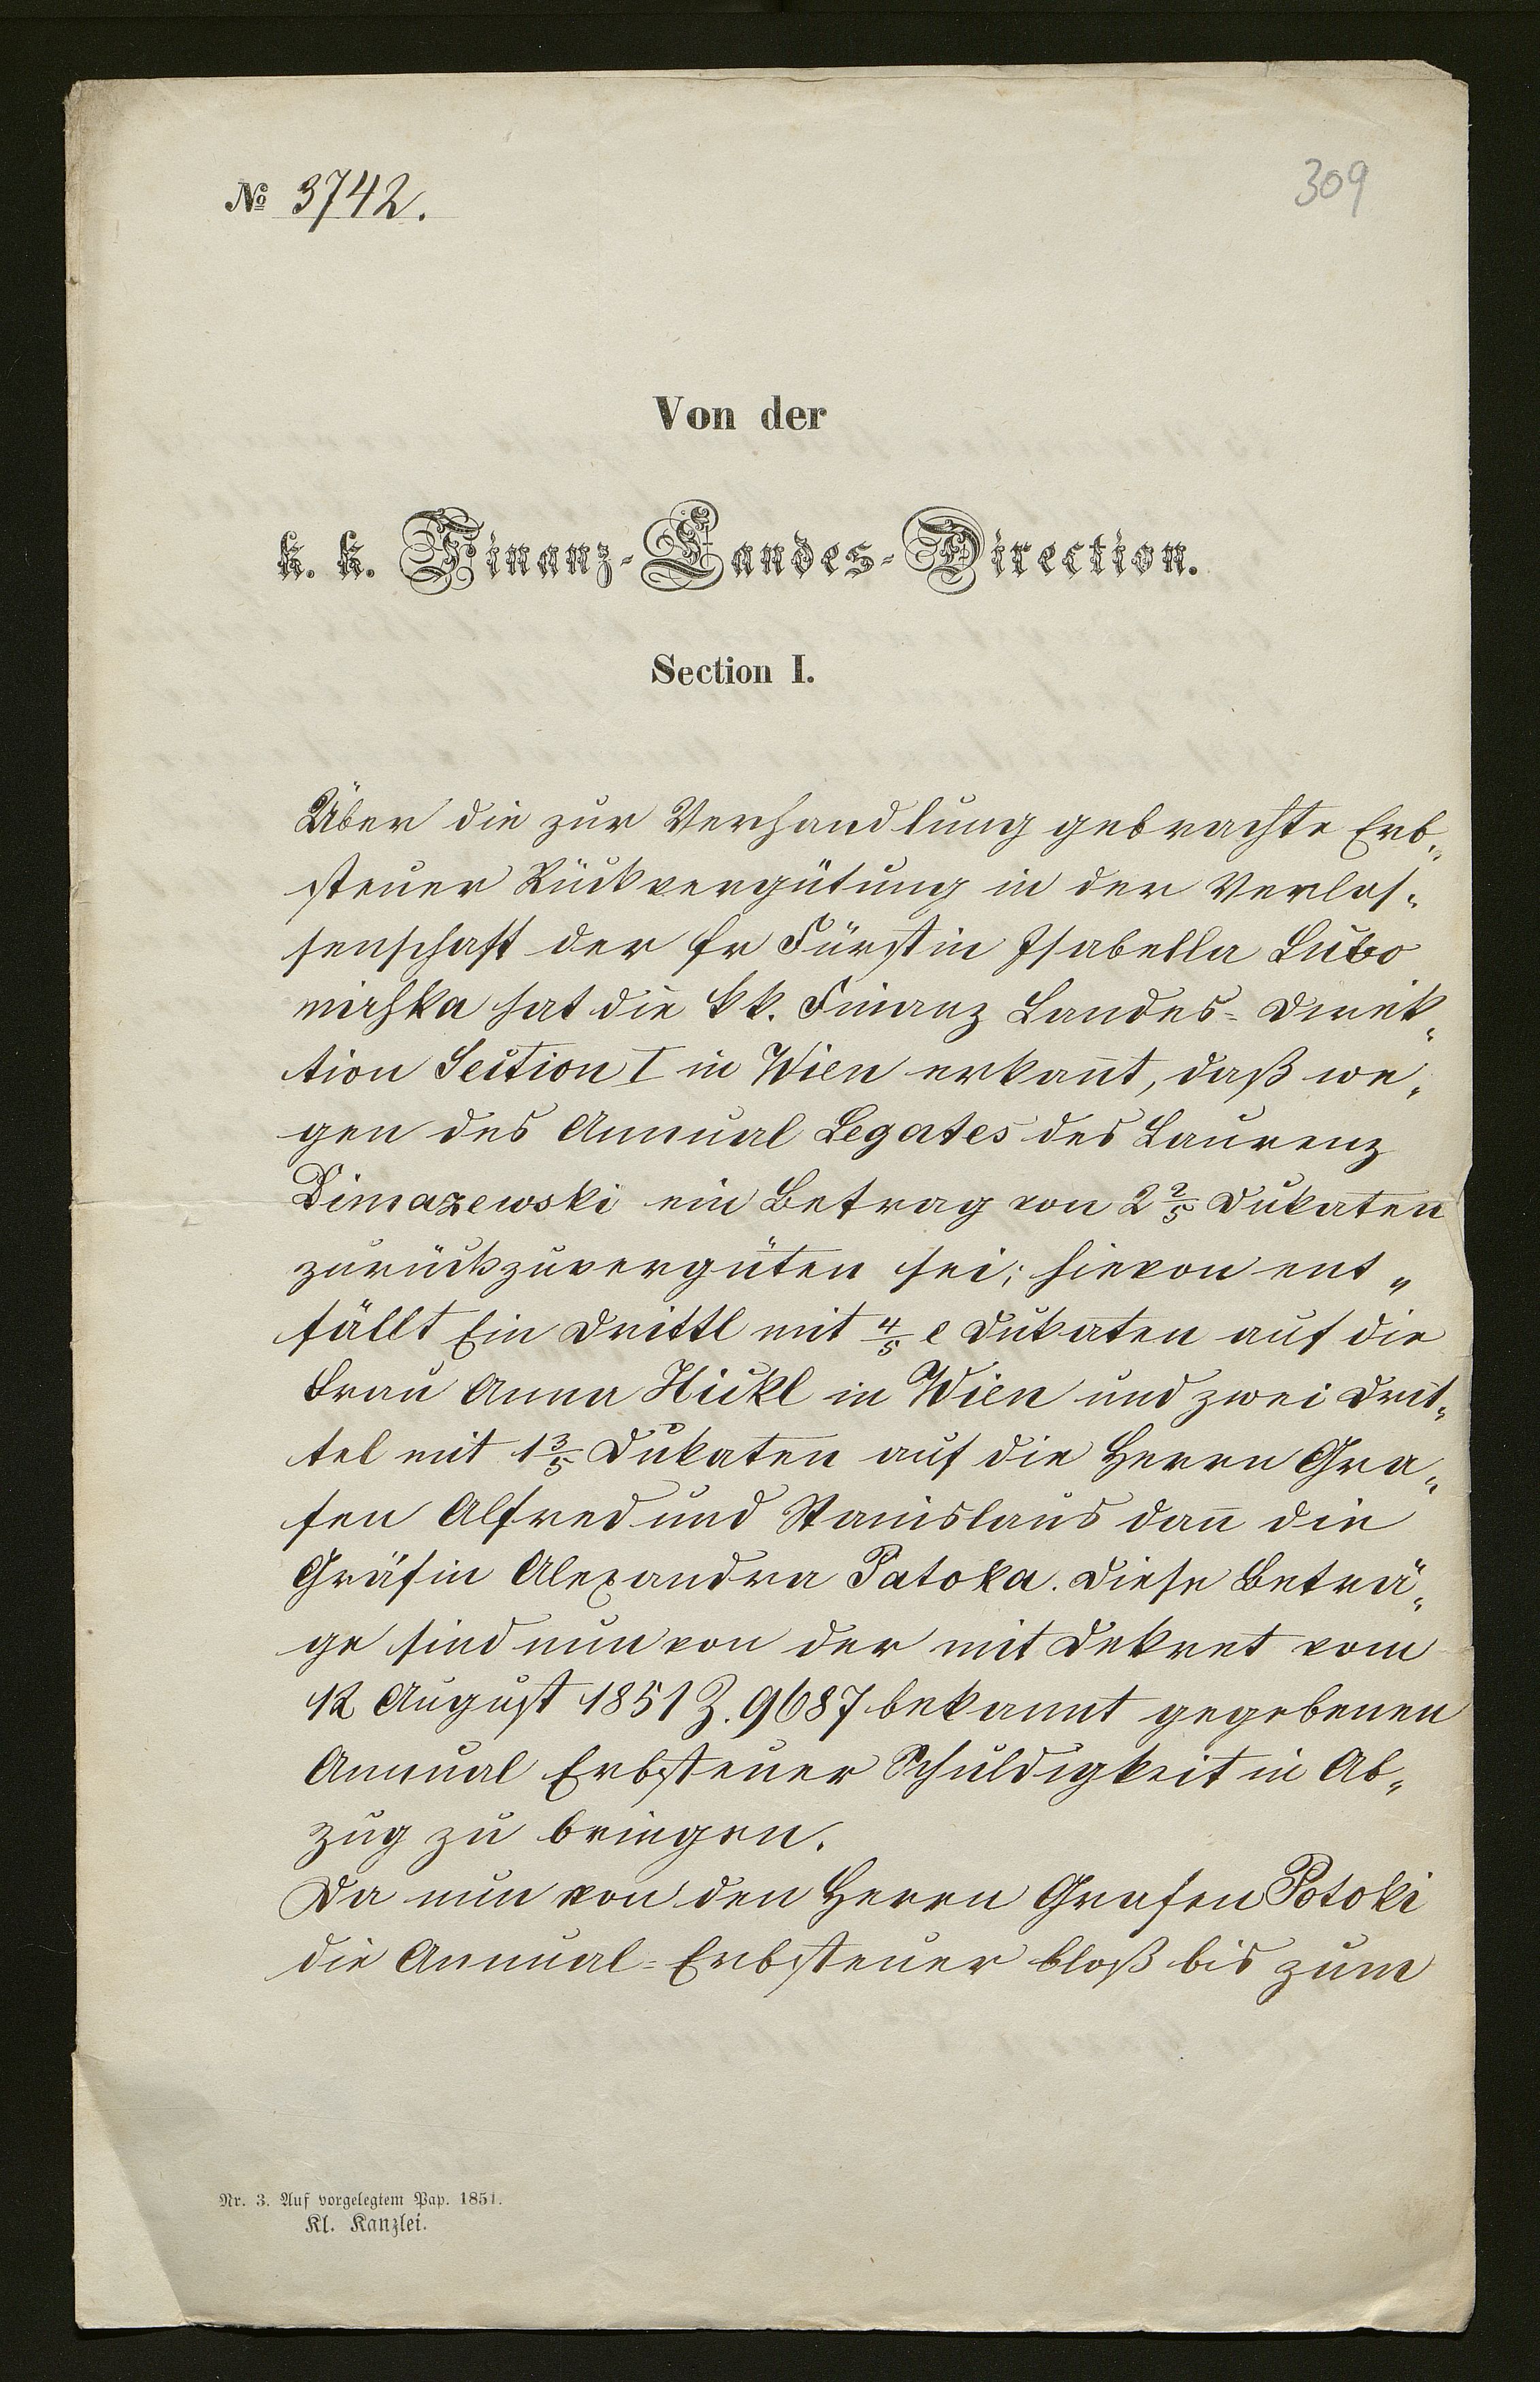 № 3742.
309
Von der
k. k. Finanz-Landes-Direction.
Section I.
Über die zur Verhandlung gebrachte Erb„
steuer Rückvergütung in der Verlas„
senschaft der Fr Fürstin Isabella Lubo
mirska hat die kk. Finanz Landes-Direk„
tion Section I in Wien erkannt, daß we„
gen des Annual Legates des Laurenz
Dimazewski ein Betrag von 2 2/5 Dukaten
zurückzuvergüten sei; hievon ent„
fällt Ein Drittl mit 4/5 e Dukaten auf die
Frau Anna Hickl in Wien und zwei Drit„
tel mit 1 3/5 Dukaten auf die Herrn Gra„
fen Alfred und Stanislaus dann die
Gräfin Alexandra Patoka. Diese Beträ„
ge sind nun von der mit Dekret vom
12 August 1851 Z. 9687 bekannt gegebenen
Annual Erbsteuer Schuldigkeit in Ab„
zug zu bringen.
Da nun von den Herrn Grafen Potoki
die Annual-Erbsteuer bloß bis zum
Nr. 3. Auf vorgelegtem Pap. 1851.
Kl. Kanzlei.